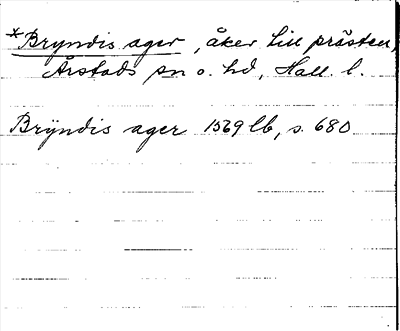 *Bryndis ager, åker till prästen,
Årstads sn o. hd, Hall. l.
Brÿndis ager 1569 lb, s. 680